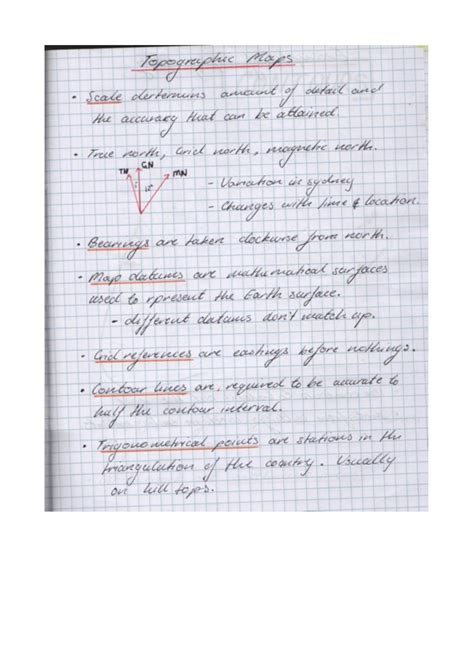 Topographic Maps
• Scale dertermins amount of detail and
the accuracy that can be attained.
• True north, Grid north, magnetic north.
TN GN MN
12°
- Variation in sydney
- Changes with time & location.
• Bearings are taken clockwise from north.
• Map datums are mathematical surfaces
used to rpresent the Earth surface.
- different datums don't match up.
• Grid references are eastings before nothings.
• Contour lines are required to be accurate to
half the contour interval.
• Trigonometrical points are stations in the
triangulation of the country. Usually
on hill tops.